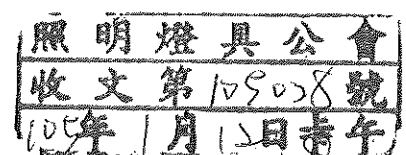 照明燈具公會
收文第105038號
105年1月12日 午